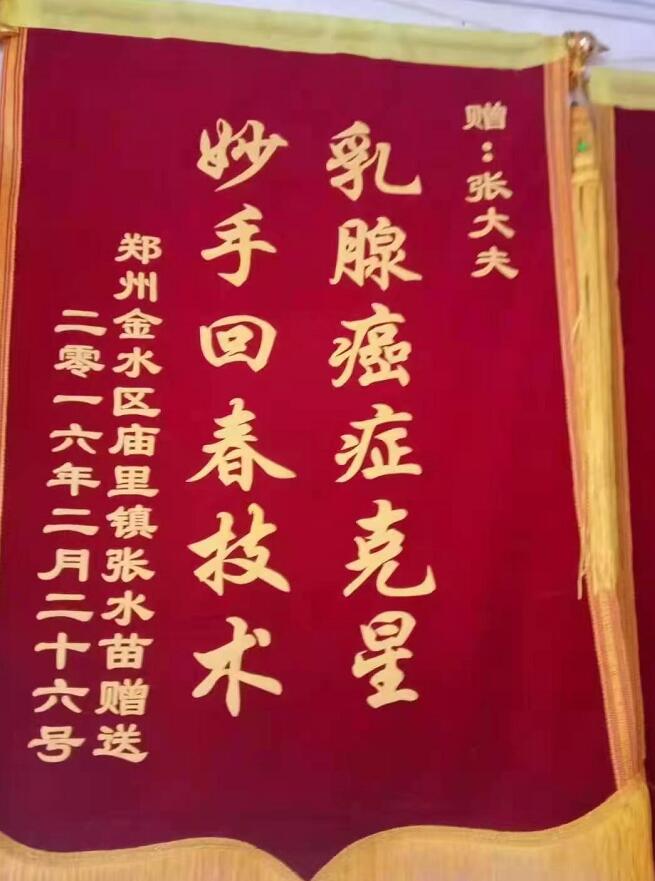 赠：张大夫
乳腺癌症克星
妙手回春技术
郑州金水区庙里镇张水苗赠送
二零一六年二月二十六号